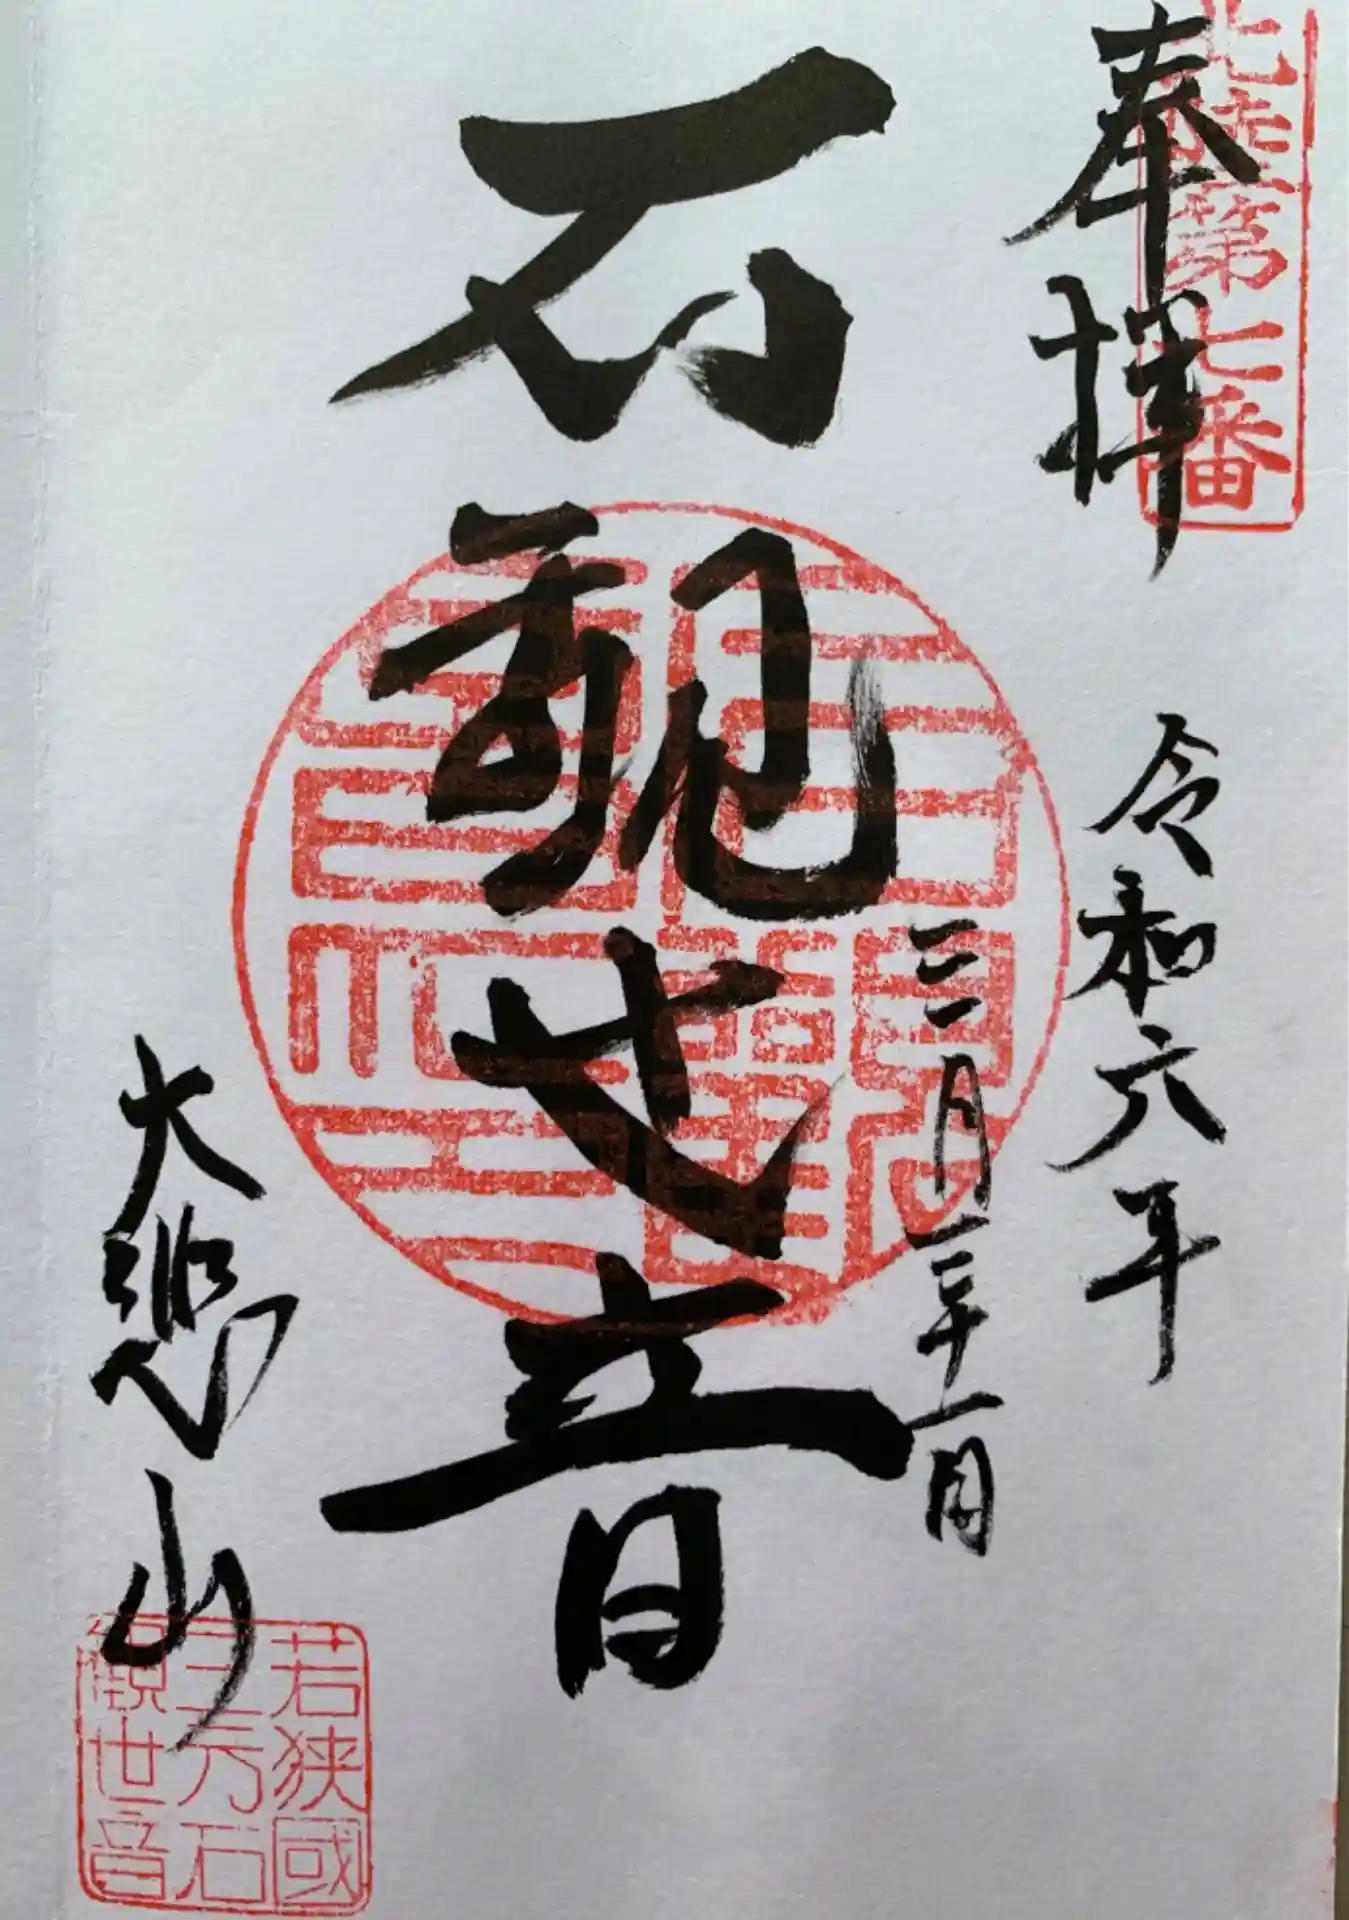 奉拝
北陸第七番
令和六年
三月三十一日
石観世音
大悲山
若狭國
三方石
観世音